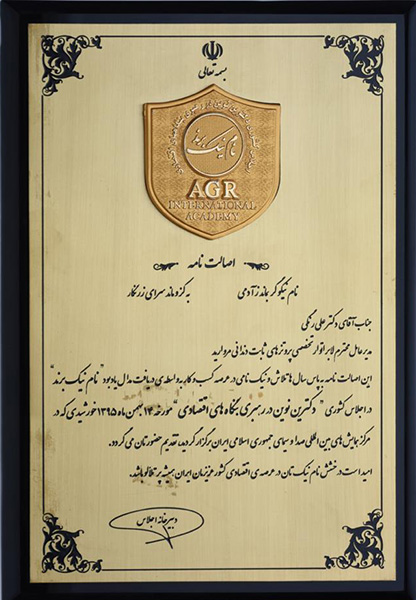 بسمه تعالی
نام نیک برندها
AGR
INTERNATIONAL
ACADEMY
اصالت نامه
نام نیکو گر بماند ز آدمی به کزو ماند سرای زرنگار
جناب آقای دکتر علی رنگی
مدیر عامل محترم لابراتوار تخصصی پروتزهای ثابت دندانی مروارید
این اصالت نامه به پاس سال ها تلاش و نیک نامی در عرصه کسب و کار به واسطه ی دریافت مدال یادبود "نام نیک برند"
در اجلاس کشوری "دکترین نوین در رهبری بنگاه های اقتصادی" مورخه ۱۴ بهمن ماه ۱۳۹۵ خورشیدی که در
مرکز همایش های بین المللی صدا و سیمای جمهوری اسلامی ایران برگزار گردید، تقدیم حضورتان می گردد.
امید است درخشش نام نیک تان در عرصه ی اقتصادی کشور عزیزمان ایران همیشه پر تلالو باشد.
دبیرخانه اجلاس